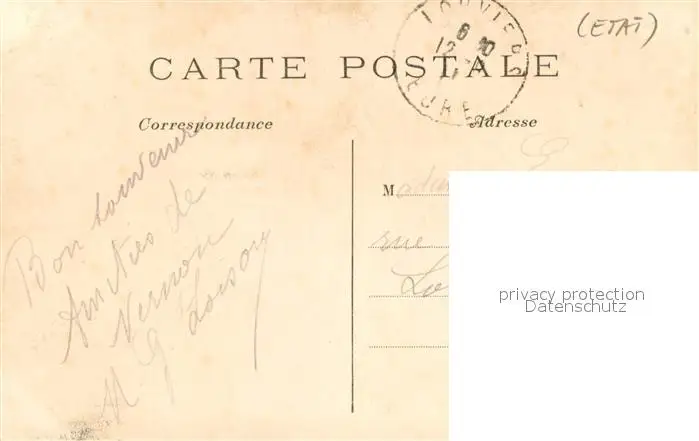 (ETAT)
LOUVIERS
6 30
12
EURE
CARTE POSTALE
Correspondance
Adresse
Bon souvenir
Amitiés de
Vernon
M G. Loison
M
rue
privacy protection
Datenschutz